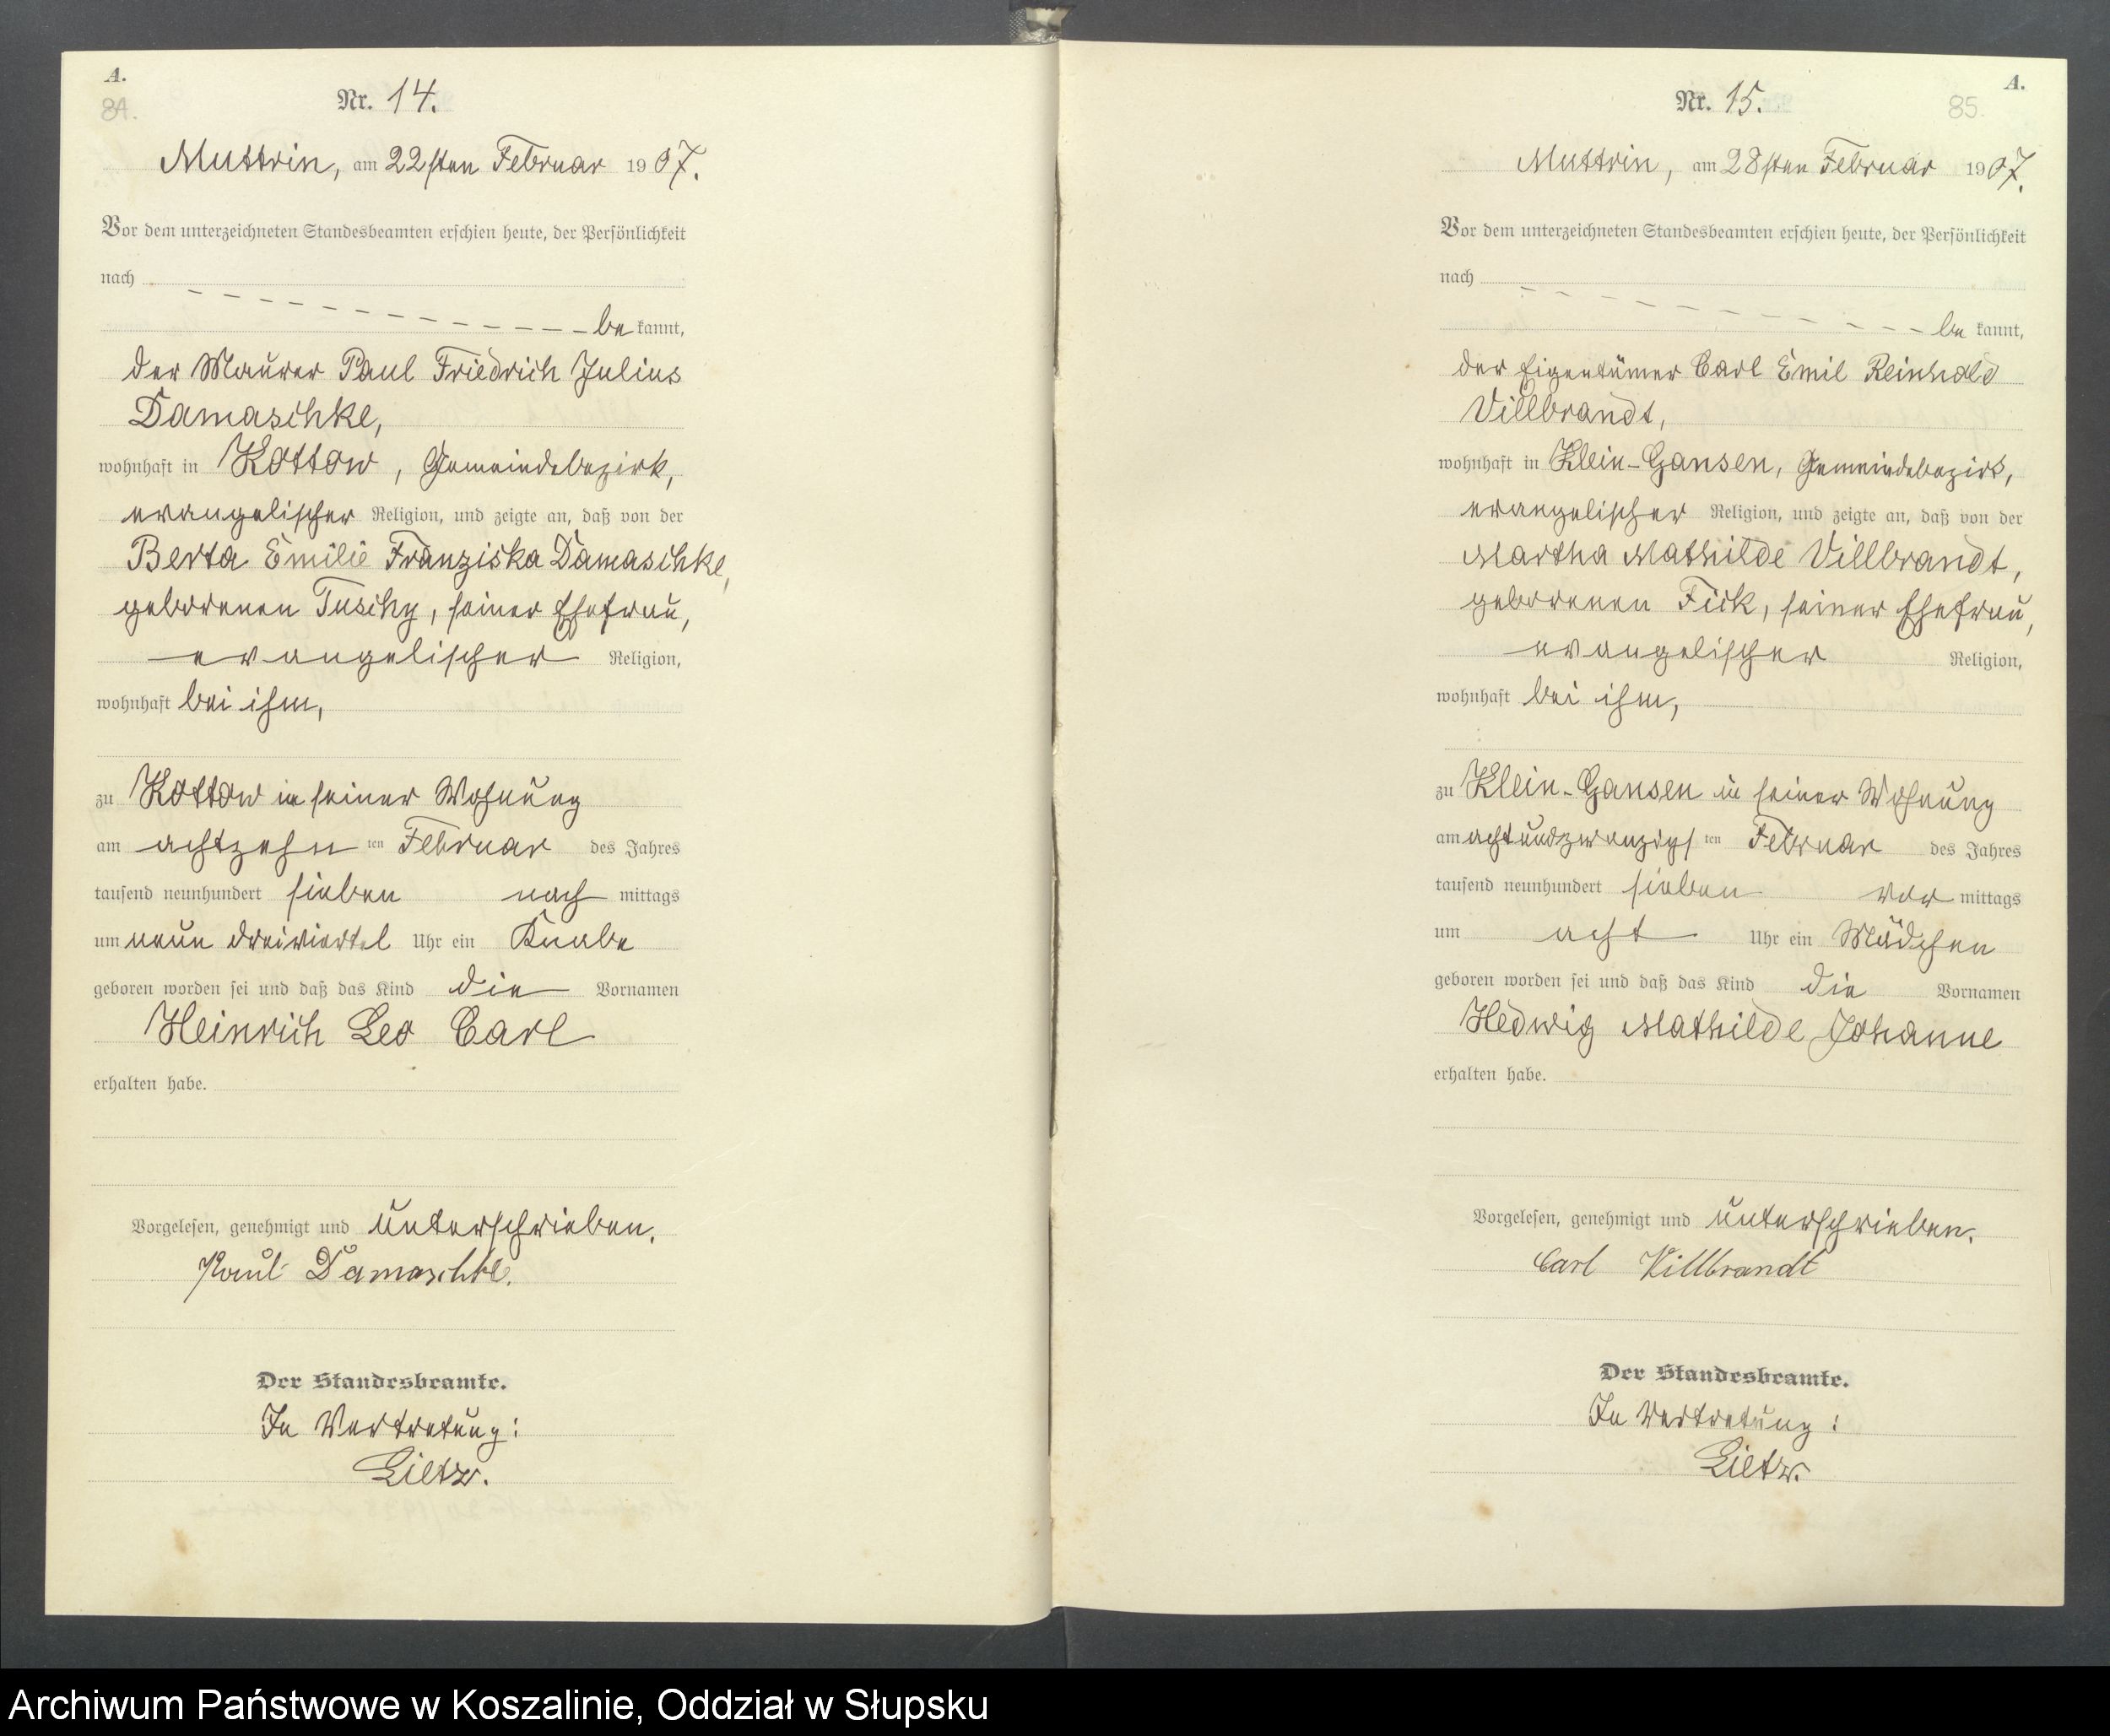 A.
84.
Nr. 14.
Muttrin, am 22sten Februar 1907.
Vor dem unterzeichneten Standesbeamten erschien heute, der Persönlichkeit
nach
be kannt,
der Maurer Paul Friedrich Julius
Damaschke,
wohnhaft in Kottow, Gemeindebezirk,
evangelischer Religion, und zeigte an, daß von der
Berta Emilie Franziska Damaschke,
geborenen Tuschy, seiner Ehefrau,
evangelischer Religion,
wohnhaft bei ihm,
zu Kottow in seiner Wohnung
am achtzehn ten Februar des Jahres
tausend neunhundert sieben nach mittags
um neun dreiviertel Uhr ein Knabe
geboren worden sei und daß das Kind die Vornamen
Heinrich Leo Carl
erhalten habe.
Vorgelesen, genehmigt und unterschrieben.
Paul Damaschke.
Der Standesbeamte.
In Vertretung:
Lietz.
A.
85.
Nr. 15.
Muttrin, am 28sten Februar 1907.
Vor dem unterzeichneten Standesbeamten erschien heute, der Persönlichkeit
nach
be kannt,
der Eigentümer Carl Emil Reinhold
Villbrandt,
wohnhaft in Klein-Gansen, Gemeindebezirk,
evangelischer Religion, und zeigte an, daß von der
Martha Mathilde Villbrandt,
geborenen Fick, seiner Ehefrau,
evangelischer Religion,
wohnhaft bei ihm,
zu Klein-Gansen in seiner Wohnung
am achtundzwanzigs ten Februar des Jahres
tausend neunhundert sieben vor mittags
um acht Uhr ein Mädchen
geboren worden sei und daß das Kind die Vornamen
Hedwig Mathilde Johanne
erhalten habe.
Vorgelesen, genehmigt und unterschrieben.
Carl Villbrandt
Der Standesbeamte.
In Vertretung:
Lietz.
Archiwum Państwowe w Koszalinie, Oddział w Słupsku